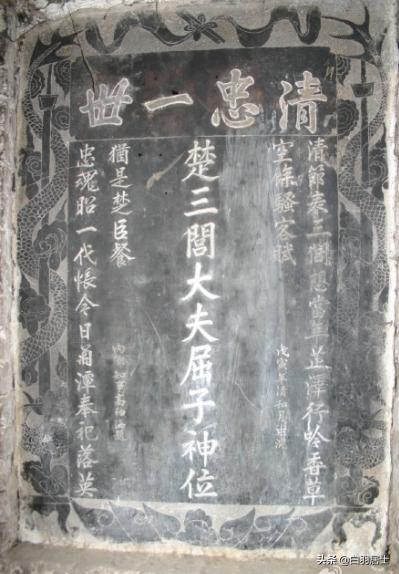 清忠一世
清節哀三閭想當年芷澤行吟香草
空餘騷客賦
戊寅年清和月
楚三閭大夫屈子神位
忠魂昭一代悵今日菊潭奉祀落英
猶是楚臣餐
头条 @白羽居士